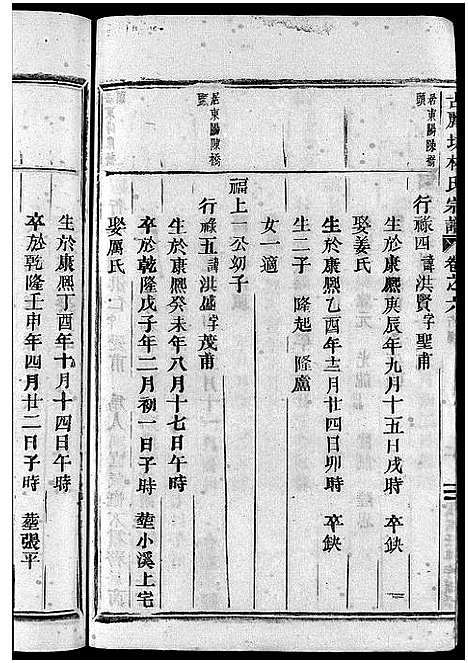 林氏宗譜 卷之六
居東陽陳橋頭
行祿四 諱洪賢 字聖甫
生於康熙庚辰年九月十五日戌時 卒缺
娶姜氏
生於康熙乙酉年十二月廿四日卯時 卒缺
生二子 隆起 隆廬
女一適
福上一公幼子
居東陽陳橋頭
行祿五 諱洪健 字茂甫
生於康熙癸未年八月十七日午時
卒於乾隆戊子年二月初一日子時 塟小溪上宅
娶厲氏
生於康熙丁酉年十月十四日午時
卒於乾隆壬申年四月廿二日子時 塟張平